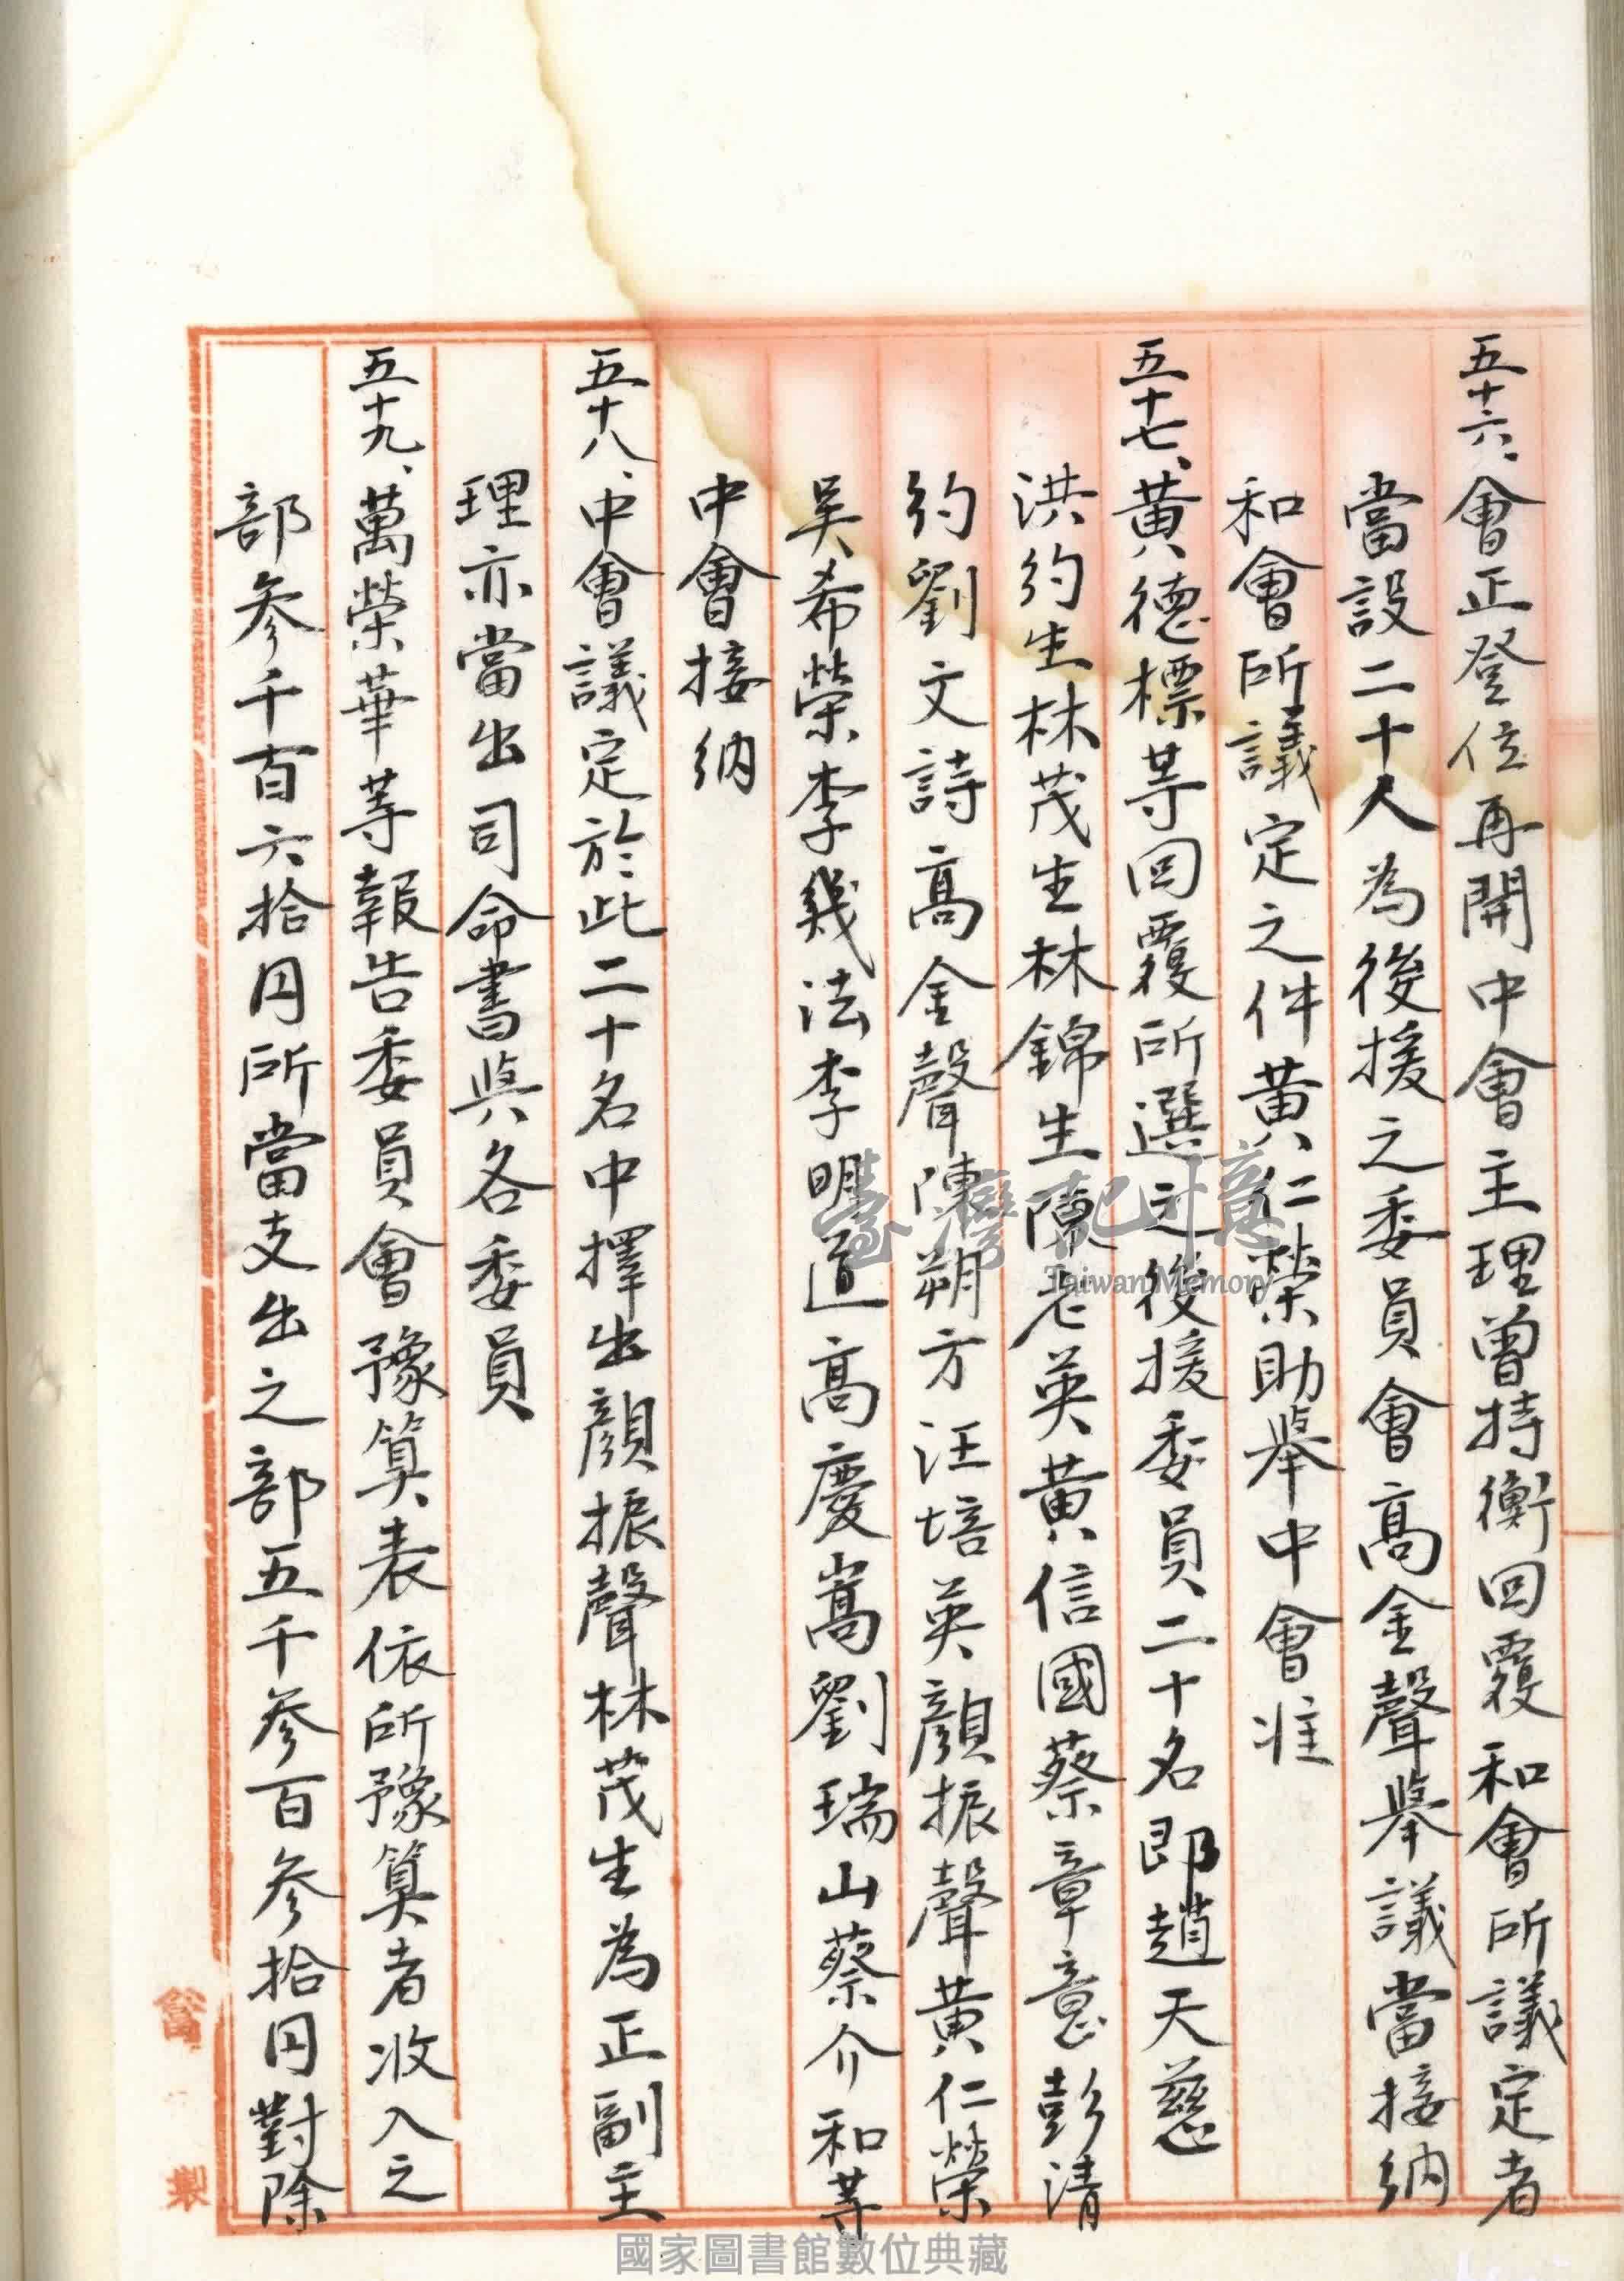 五十六、會正登位再開中會主理曾持衡回覆和會所議定者
當設二十人為後援之委員會高金聲舉議當接納
和會所議定之件黃仁榮助舉中會准
五十七、黃德標等回覆所選之後援委員二十名即趙天慈
洪約生林茂生林錦生陳老英黃信國蔡章意彭清
約劉文詩高金聲陳朔方汪培英顏振聲黃仁榮
吳希榮李幾法李明道高慶嵩劉瑞山蔡介和等
中會接納
五十八、中會議定於此二十名中擇出顏振聲林茂生為正副主
理亦當出司命書與各委員
五十九、萬榮華等報告委員會豫算表依所豫算者收入之
部參千百六拾円所當支出之部五千參百參拾円對除
製
臺灣記憶
Taiwan Memory
國家圖書館數位典藏